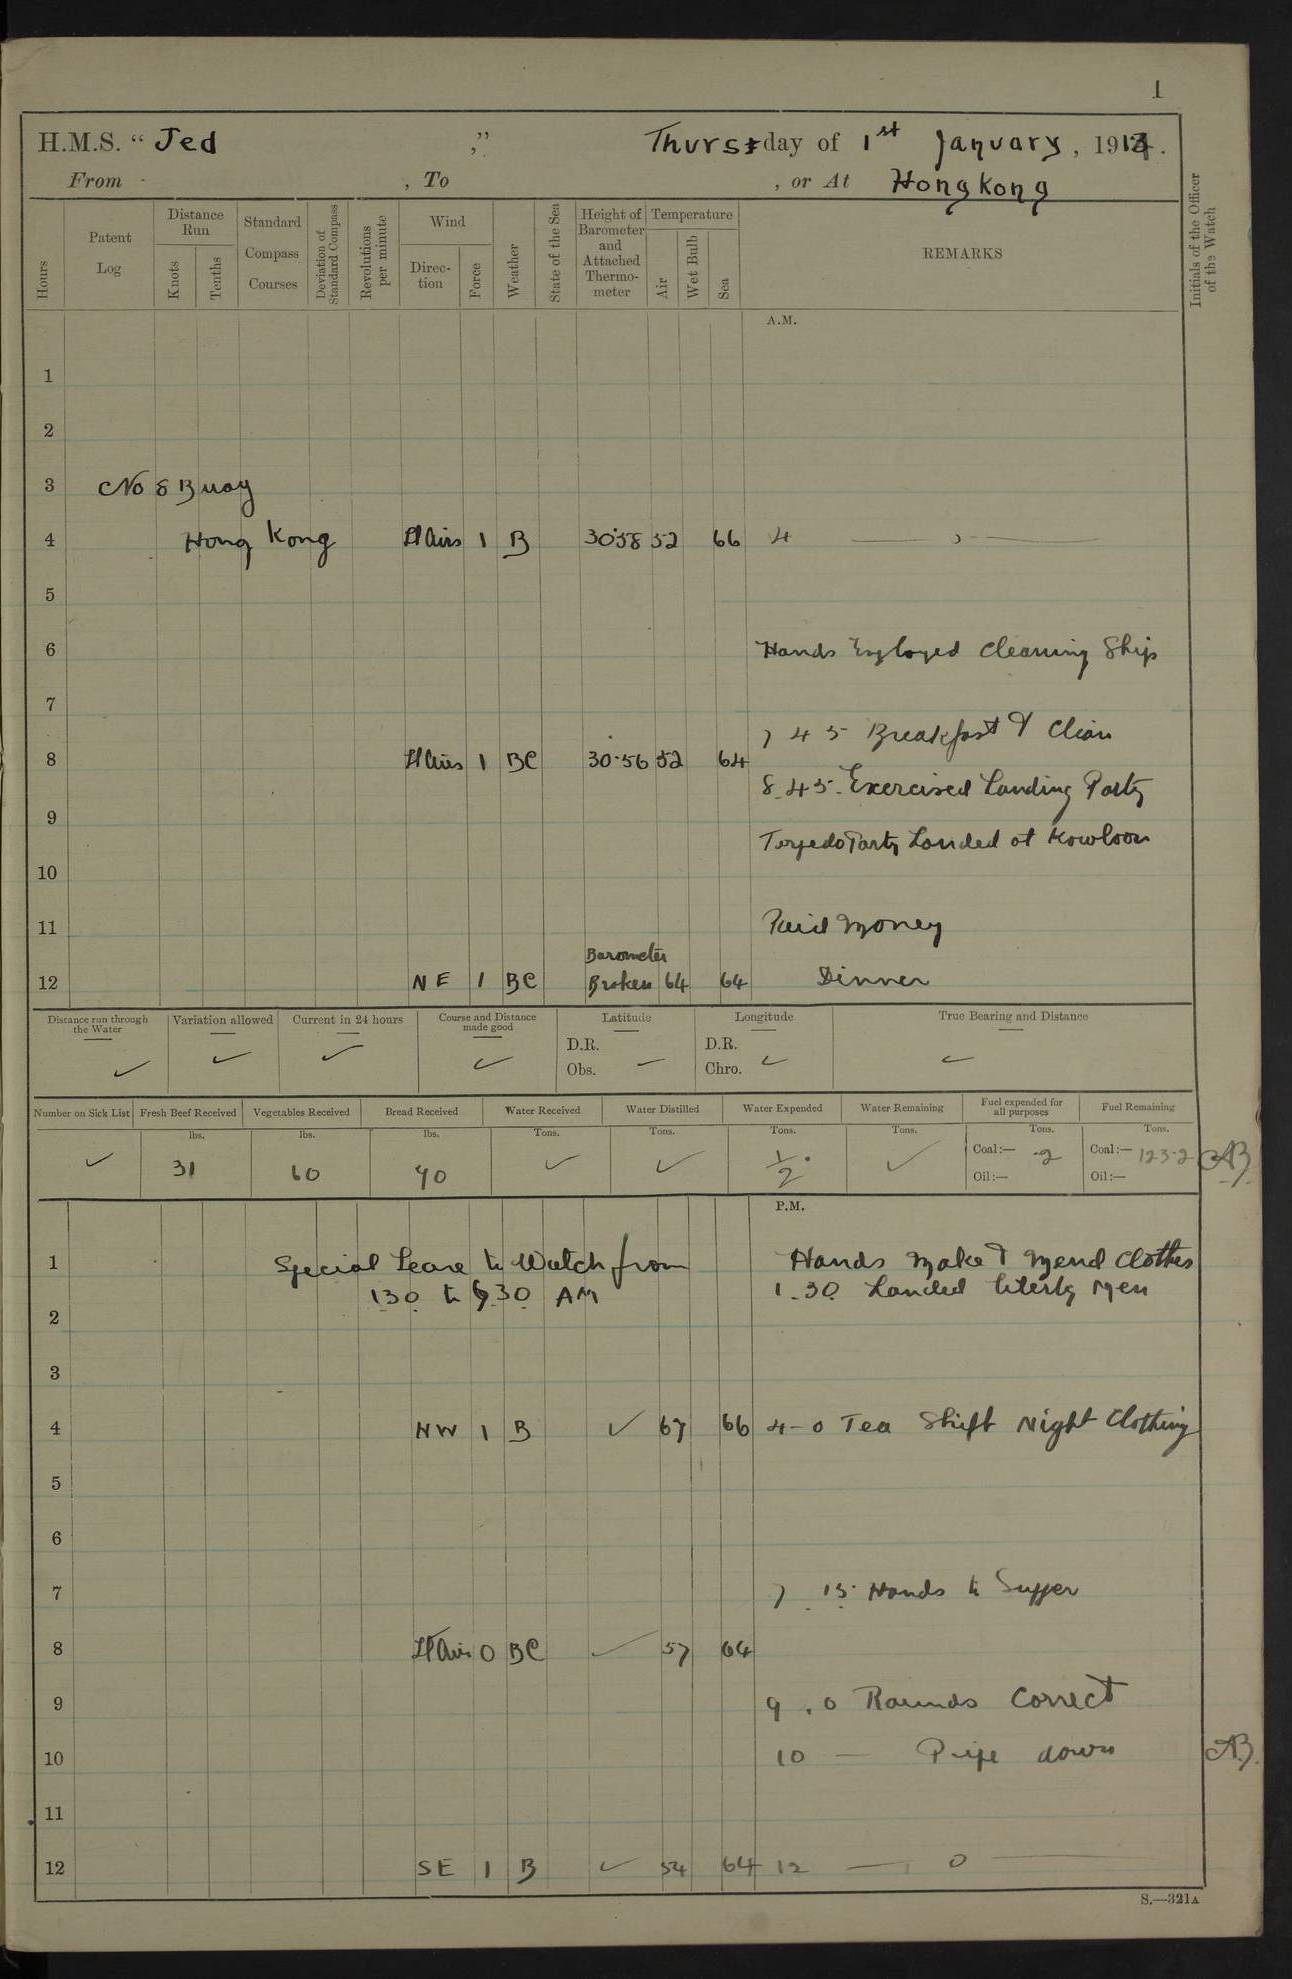 1
H.M.S. “ Jed ,” Thursday of 1st January, 1914.
From , To , or At Hong Kong
Hours
Patent Log
Distance Run
Knots
Tenths
Standard Compass Courses
Deviation of Standard Compass
Revolutions per minute
Wind
Direction
Force
Weather
State of the Sea
Height of Barometer and Attached Thermometer
Temperature
Air
Wet Bulb
Sea
REMARKS
Initials of the Officer of the Watch
A.M.
1
2
3 No 8 Buoy
4 Hong Kong Lt Airs 1 B 30·58 52 66 4
5
6 Hands Employed Cleaning Ship
7
7 45 Breakfast & Clean
8 Lt Airs 1 BC 30·56 52 64
8.45. Exercised Landing Party
9
Torpedo Party Landed at Kowloon
10
11 Paid Money
Barometer
12 NE 1 BC Broken 64 64 Dinner
Distance run through the Water
Variation allowed
Current in 24 hours
Course and Distance made good
Latitude
Longitude
True Bearing and Distance
D.R. D.R.
Obs. Chro.
Number on Sick List
Fresh Beef Received
Vegetables Received
Bread Received
Water Received
Water Distilled
Water Expended
Water Remaining
Fuel expended for all purposes
Fuel Remaining
lbs. lbs. lbs. Tons. Tons. Tons. Tons. Tons. Tons.
31 60 40 1/2 Coal:— ·2 Coal:— 123·2 AB
Oil:— Oil:—
P.M.
1 Special Leave to Watch from Hands Make & Mend Clothes
1.30 to 6.30 AM 1.30 Landed Liberty Men
2
3
4 NW 1 B 67 66 4-0 Tea Shift Night Clothing
5
6
7 7.15 Hands to Supper
8 Lt Airs 0 BC 57 64
9 9.0 Rounds Correct
10 10 — Pipe down AB.
11
12 SE 1 B 54 64 12 — 0
S.—321A